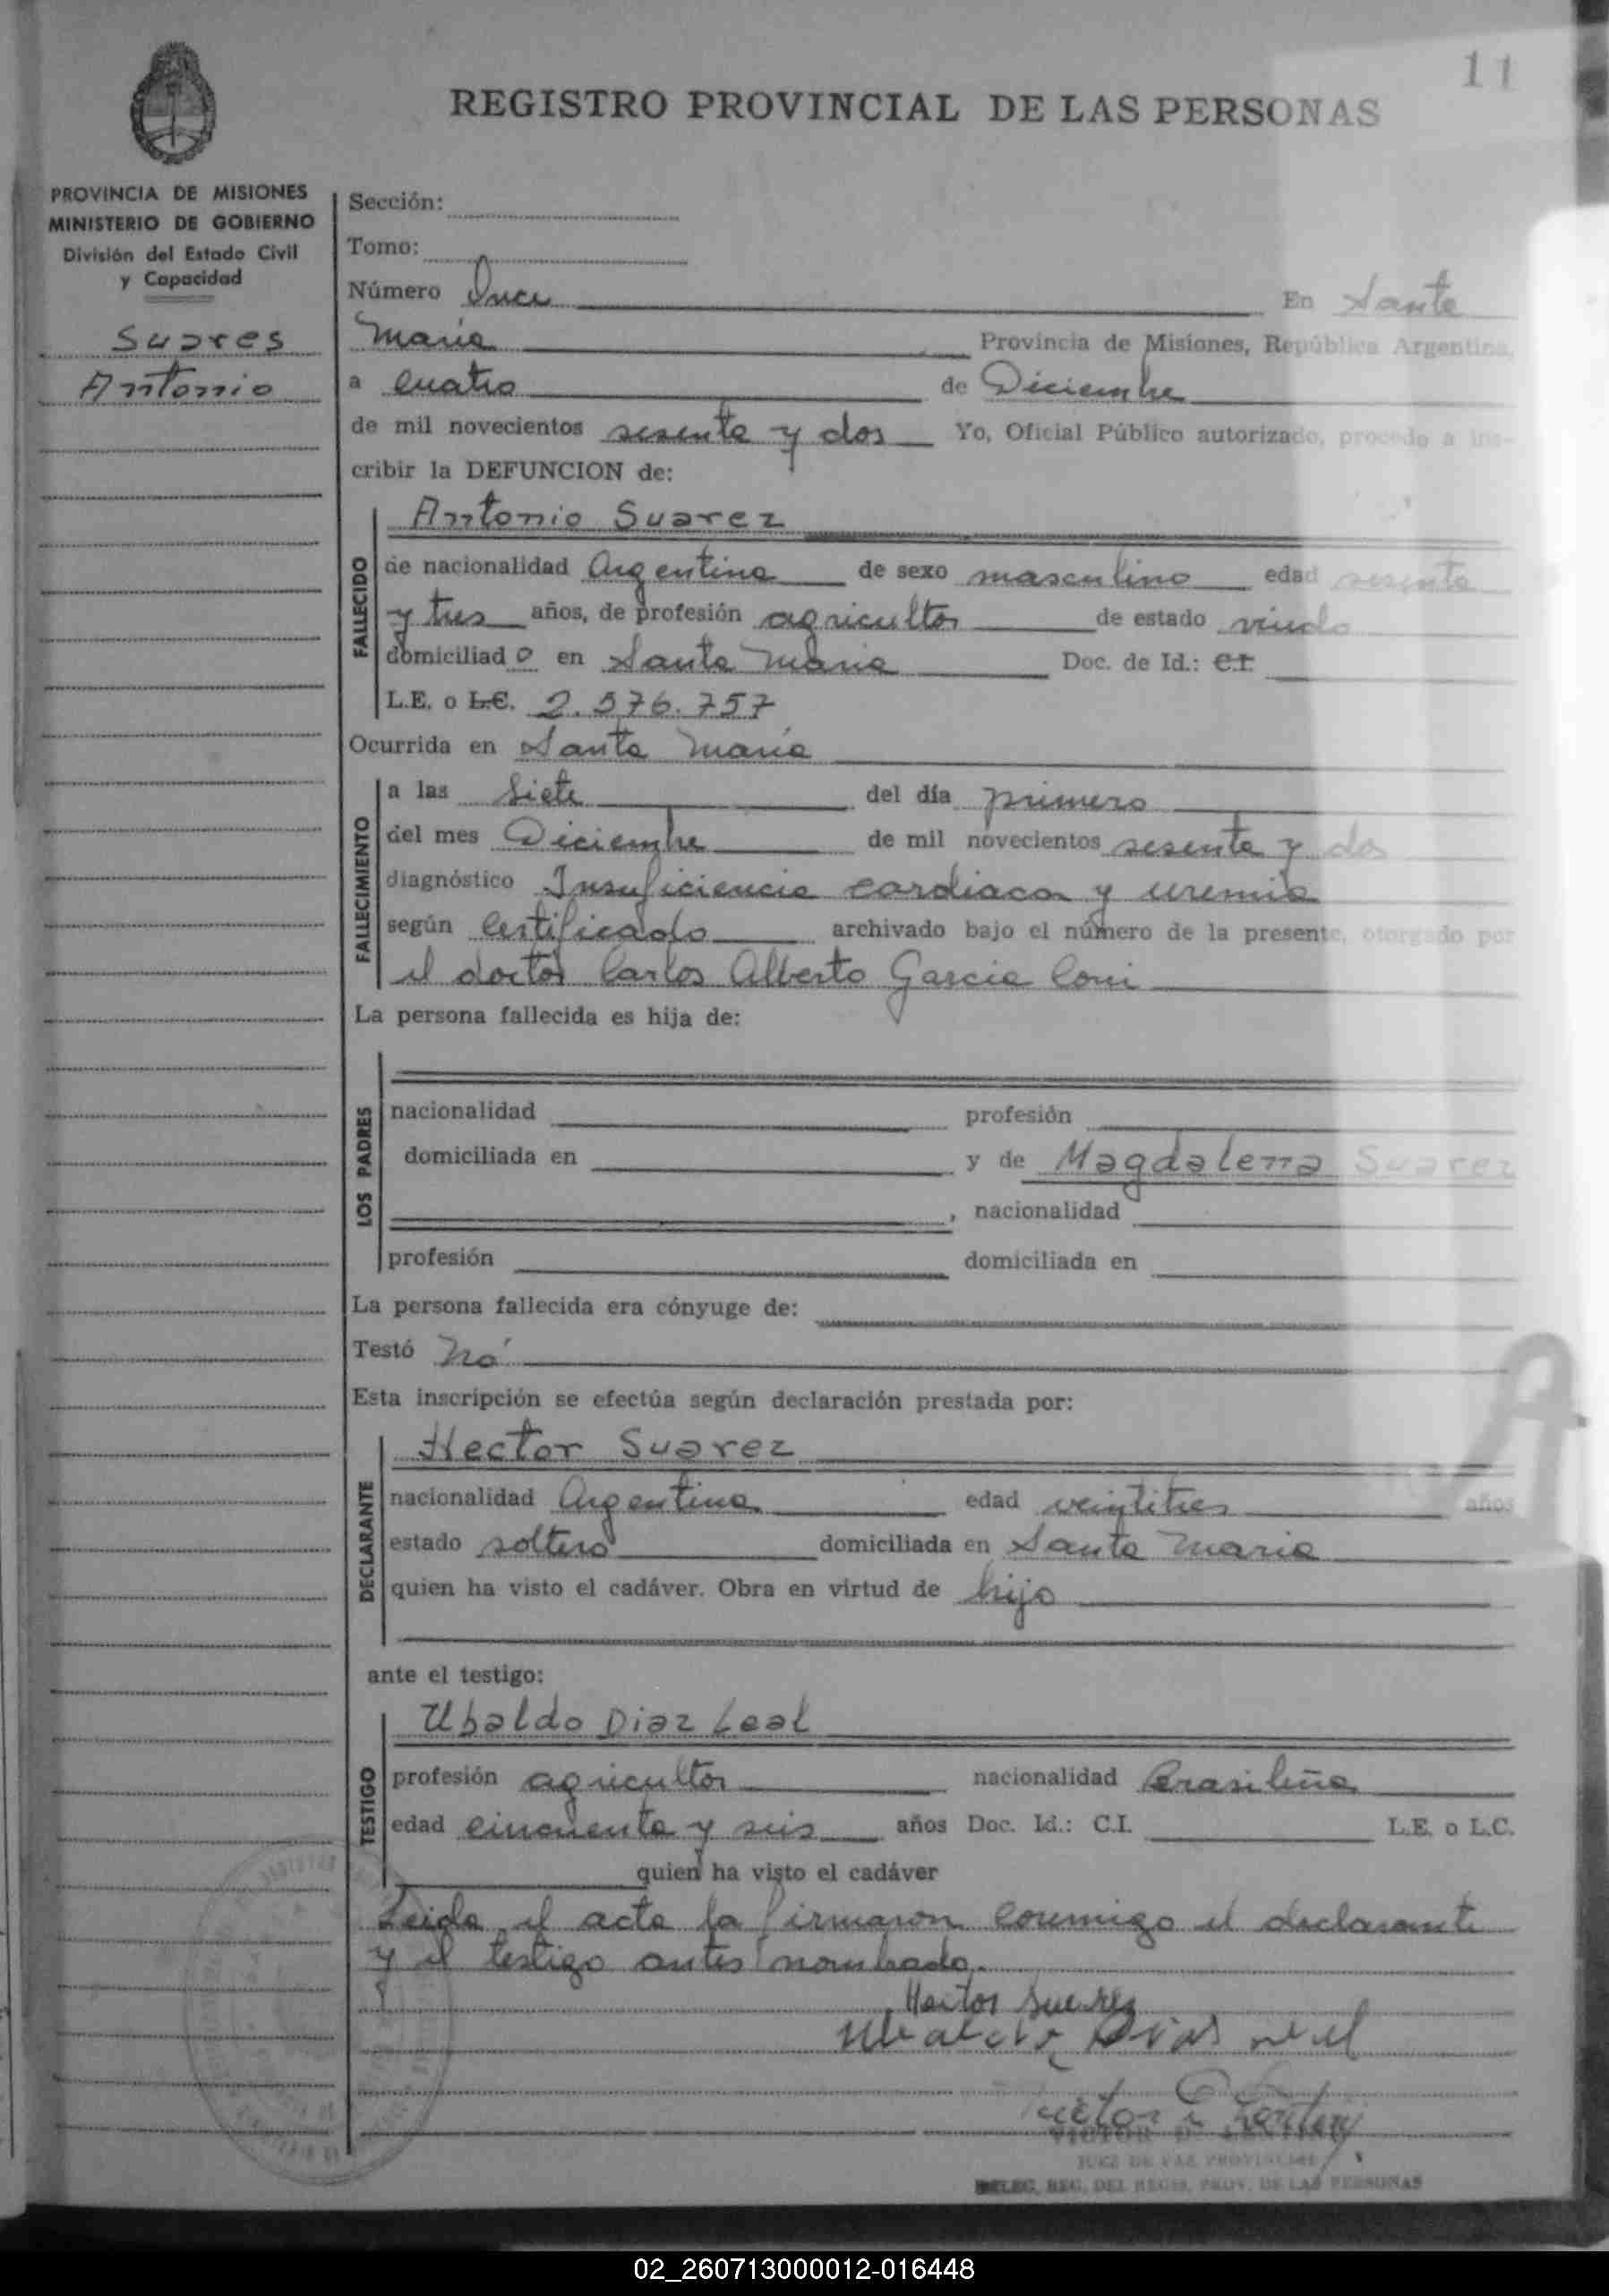 11
REGISTRO PROVINCIAL DE LAS PERSONAS
PROVINCIA DE MISIONES
MINISTERIO DE GOBIERNO
División del Estado Civil
y Capacidad
Suares
Antonio
Sección:
Tomo:
Número Once En Santa
María Provincia de Misiones, República Argentina,
a cuatro de Diciembre
de mil novecientos sesenta y dos Yo, Oficial Público autorizado, procedo a ins-
cribir la DEFUNCION de:
FALLECIDO
Antonio Suarez
de nacionalidad Argentina de sexo masculino edad sesenta
y tres años, de profesión agricultor de estado viudo
domiciliado en Santa María Doc. de Id.: C.I.
L.E. o L.C. 2.576.757
Ocurrida en Santa María
FALLECIMIENTO
a las Siete del día primero
del mes Diciembre de mil novecientos sesenta y dos
diagnóstico Insuficiencia cardiaca y uremia
según Certificado archivado bajo el número de la presente, otorgado por
el doctor Carlos Alberto Garcia Coni
La persona fallecida es hija de:
LOS PADRES
nacionalidad profesión
domiciliada en y de Magdalena Suarez
, nacionalidad
profesión domiciliada en
La persona fallecida era cónyuge de:
Testó Nó
Esta inscripción se efectúa según declaración prestada por:
DECLARANTE
Hector Suarez
nacionalidad Argentina edad veintitres años
estado soltero domiciliada en Santa María
quien ha visto el cadáver. Obra en virtud de hijo
ante el testigo:
TESTIGO
Ubaldo Diaz Leal
profesión agricultor nacionalidad Brasileña
edad cincuenta y seis años Doc. Id.: C.I. L.E. o L.C.
quien ha visto el cadáver
Leida el acta la firmaron conmigo el declarante
y el testigo antes nombrado.
Hector Suarez
JUEZ DE PAZ PROVINCIAL
DELEG. REG. DEL REGIS. PROV. DE LAS PERSONAS
A
02_260713000012-016448